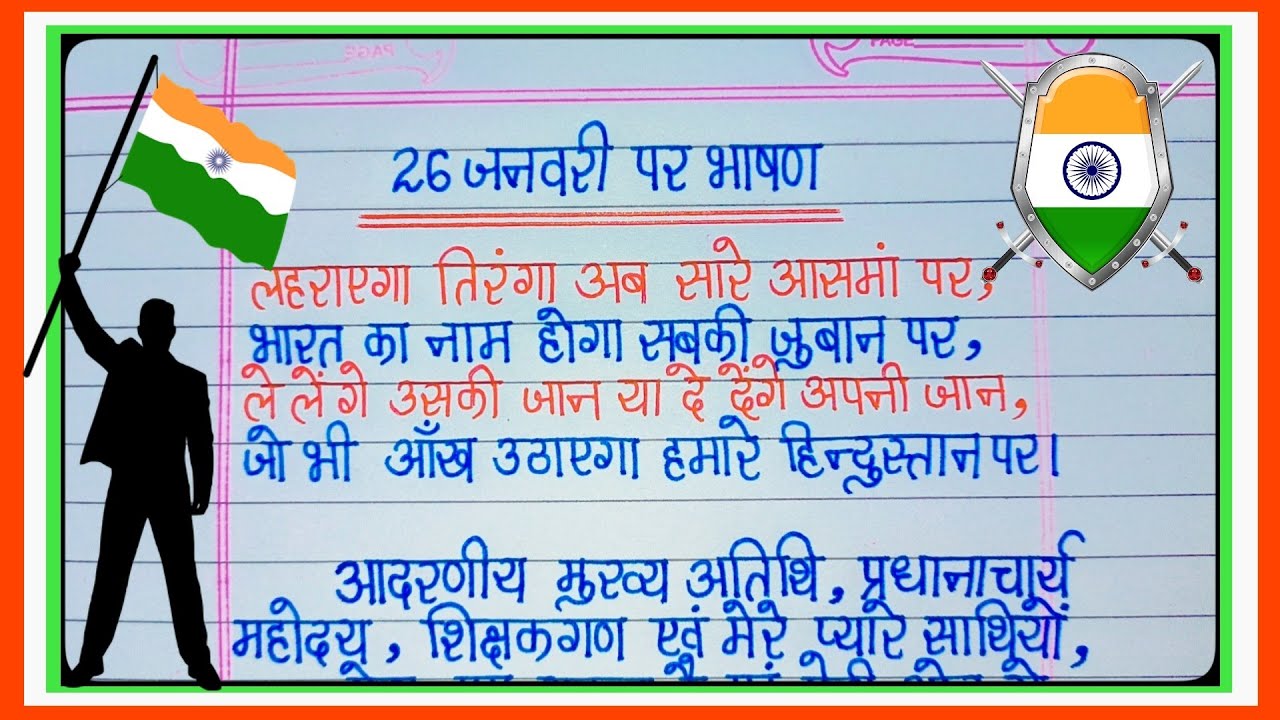 PAGE
PAGE
26 जनवरी पर भाषण
लहराएगा तिरंगा अब सारे आसमां पर,
भारत का नाम होगा सबकी ज़ुबान पर,
ले लेंगे उसकी जान या दे देंगे अपनी जान,
जो भी आँख उठाएगा हमारे हिन्दुस्तान पर।
आदरणीय मुख्य अतिथि, प्रधानाचार्य
महोदय, शिक्षकगण एवं मेरे प्यारे साथियों,